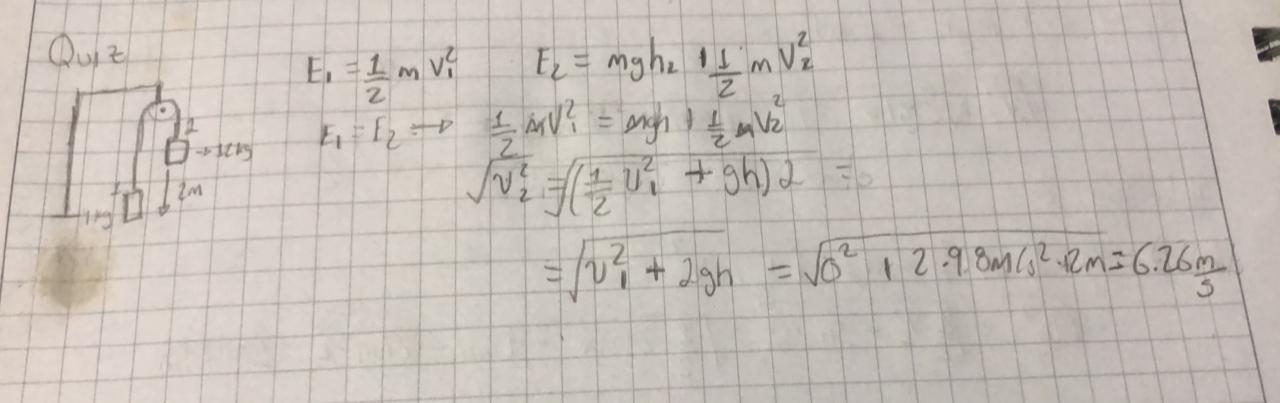 Quiz
E₁ = 1/2 m V₁² E₂ = mgh₂ + 1/2 m V₂²
E₁ = E₂ → 1/2 mV₁² = mgh + 1/2 mV₂²
√V₂² = √(1/2 V₁² + gh)2 =
= √V₁² + 2gh = √0² + 2·9.8m/s²·2m = 6.26 m/s
2
1
1kg
2m